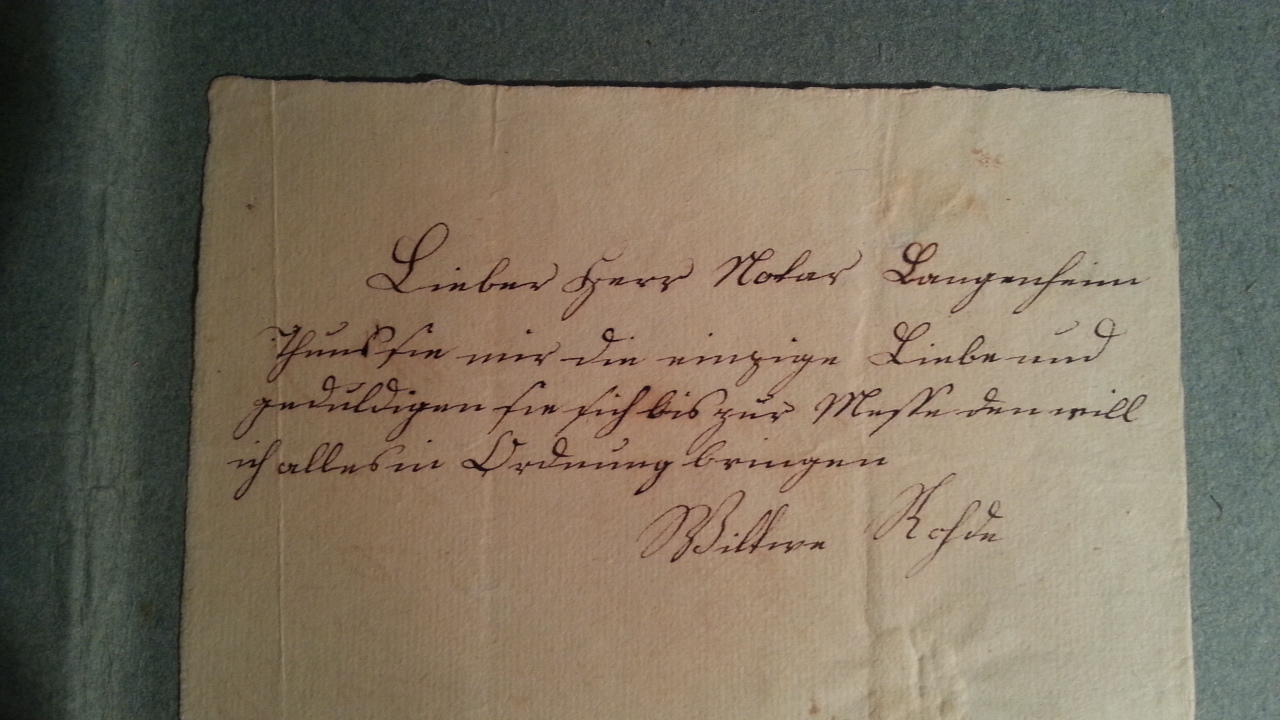 Lieber Herr Notar Langenheim
Thuns sie mir die einzige Liebe und
geduldigen sie sich bis zur Messe den will
ich alles in Ordnung bringen
Wittwe Rohde